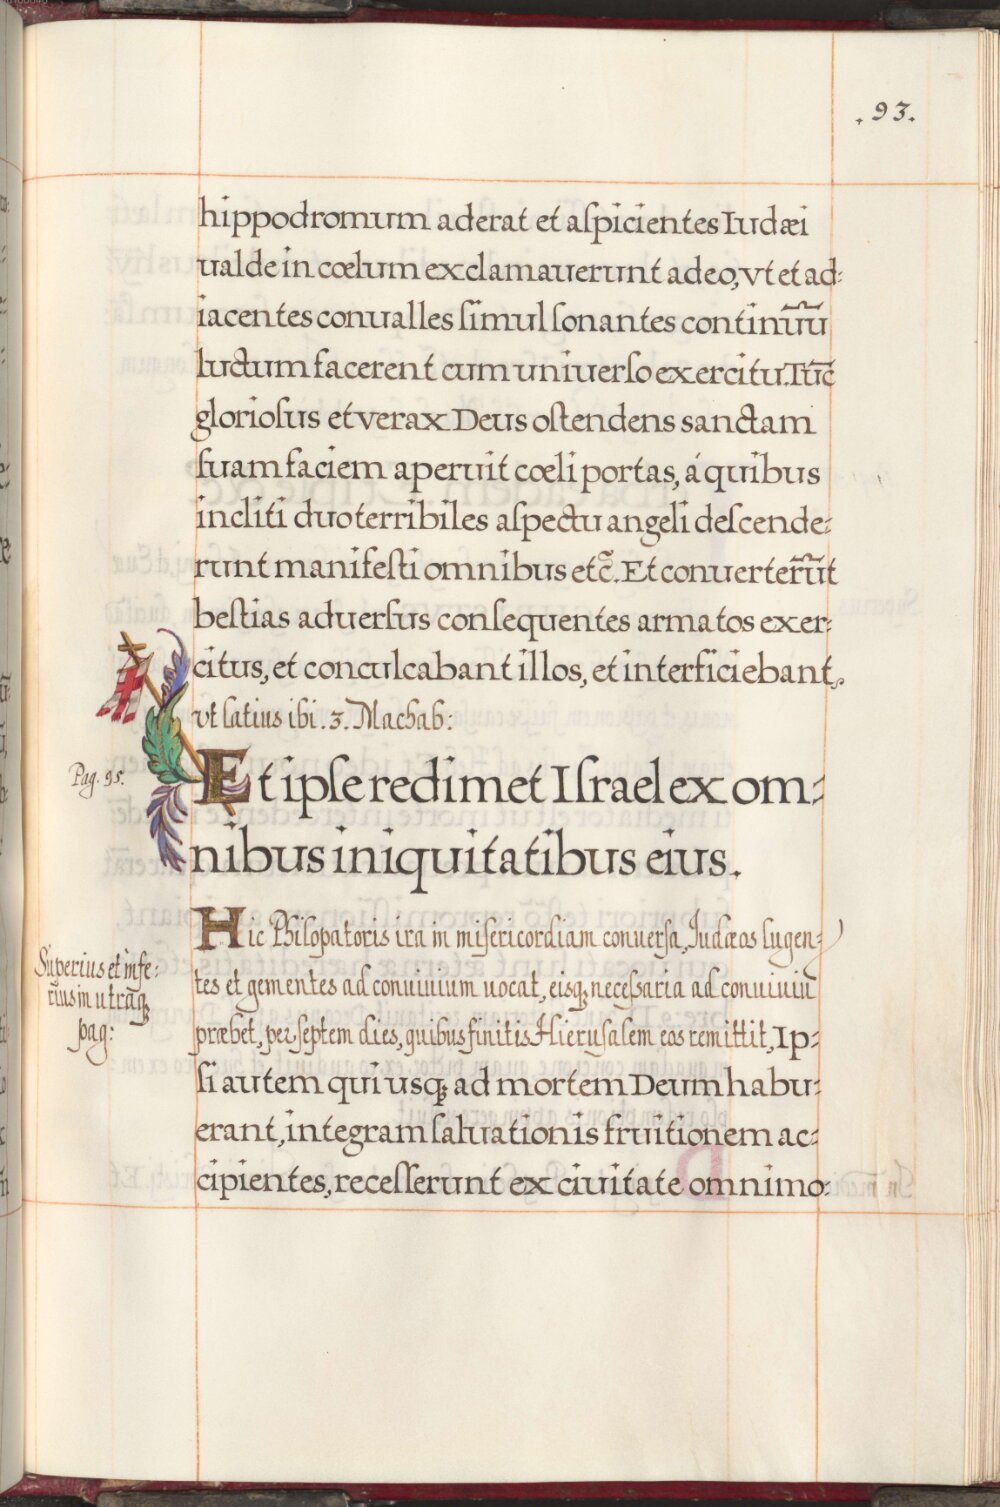 .93.
hippodromum aderat et aſpicientes Iudæi
ualde in cœlum exclamauerunt adeo, vt et ad:
iacentes conualles ſimul ſonantes continũũ
luctum facerent cum uniuerſo exercitu. Tũc
glorioſus et verax Deus oſtendens sanctam
ſuam faciem aperuit cœli portas, á quibus
incliti duo terribiles aſpectu angeli deſcende:
runt manifeſti omnibus etc̃. Et conuerter̃ũt
beſtias aduerſus conſequentes armatos exer:
citus, et conculcabant illos, et interficiebant,
vt latius ibi. 3. Machab:
Pag. 95.
Et ipſe redimet Iſrael ex om:
nibus iniquitatibus eius.
Hic Philopatoris ira in miſericordiam conuerſa, Iudæos lugen:
Superius et infe:
rius in utraq;
pag:
tes et gementes ad conuiuium uocat, eisq; neceſsaria ad conuiuiũ
præbet, per ſeptem dies, quibus finitis Hieruſalem eos remittit, Ip:
ſi autem qui usq; ad mortem Deum habu:
erant, integram ſaluationis fruitionem ac:
cipientes, receſſerunt ex ciuitate omnimo: